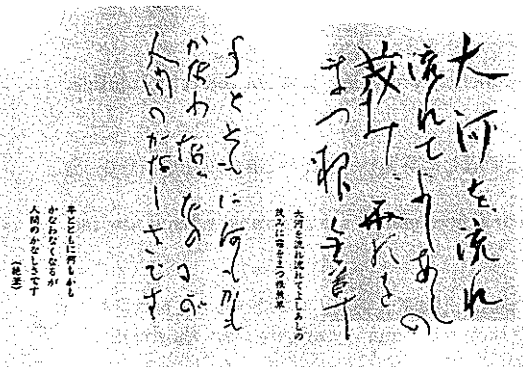 大河を流れ
流れてよしあしの
茂みに
まつ根無草
大河を流れ流れてよしあしの
茂みに宿をまつ根無草
年とともに何もかも
かなわなくなるが
人間のかなしさです
年とともに何もかも
かなわなくなるが
人間のかなしさです
(絶筆)